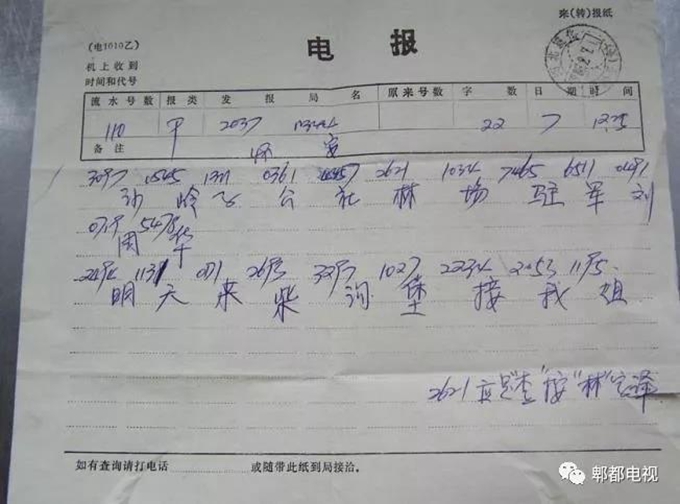 来(转)报纸
(电1010乙)
电 报
机上收到
时间和代号
流水号数 报类 发报局名 原来号数 字数 日期 时间
110 甲 2037 22 7 1225
备注
3097 1545 1311 0361 4357 2621 1034 7465 6511 0491
沙岭子公社林场驻军刘
0719 5478
周华
2494 1131 0171 2693 3297 1027 2234 2053 1195
明天来柴沟堡接我姐
2621应是"查"按"林"字译
如有查询请打电话 或随带此纸到局接洽。
郫都电视